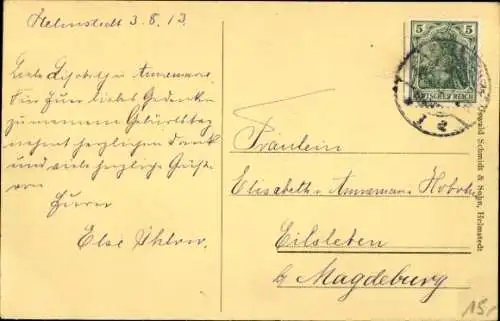 Helmstedt 3.8.13.
Liebe Elisabeth u Annemarie
Für Euer liebes Gedenken
zu meinem Geburtstag
nehmt herzlichen Dank
und viele herzliche Grüße
von
Eurer
Else
5 5
DEUTSCHES REICH
Fräulein
Elisabeth u Annemarie
Eilsleben
b/ Magdeburg
Oswald Schmidt & Sohn, Helmstedt
15,-